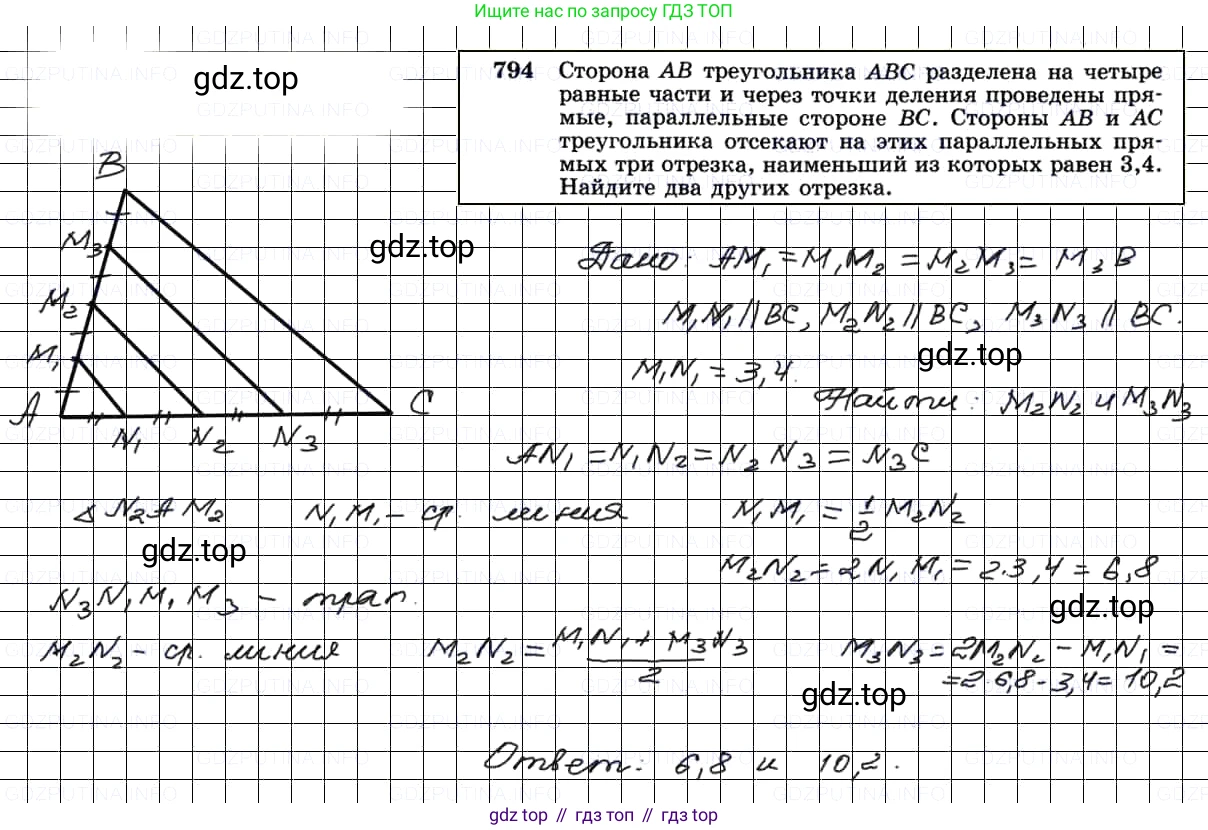 Ищите нас по запросу ГДЗ ТОП
gdz.top
794 Сторона AB треугольника ABC разделена на четыре
равные части и через точки деления проведены пря-
мые, параллельные стороне BC. Стороны AB и AC
треугольника отсекают на этих параллельных пря-
мых три отрезка, наименьший из которых равен 3,4.
Найдите два других отрезка.
B
M₃
M₂
M₁
A
N₁ N₂ N₃
C
gdz.top
Дано: AM₁ = M₁M₂ = M₂M₃ = M₃B
M₁N₁ || BC, M₂N₂ || BC, M₃N₃ || BC.
gdz.top
M₁N₁ = 3,4.
Найти: M₂N₂ и M₃N₃
AN₁ = N₁N₂ = N₂N₃ = N₃C
△ N₂AM₂ N₁M₁ – ср. линия N₁M₁ = 1/2 M₂N₂
gdz.top
M₂N₂ = 2N₁M₁ = 2·3,4 = 6,8
N₃N₁M₁M₃ – трап.
gdz.top
M₂N₂ – ср. линия M₂N₂ = (M₁N₁ + M₃N₃)/2 M₃N₃ = 2M₂N₂ – M₁N₁ =
= 2·6,8 – 3,4 = 10,2
gdz.top
Ответ: 6,8 и 10,2.
gdz top // гдз топ // gdz top
GDZPUTINA.INFO